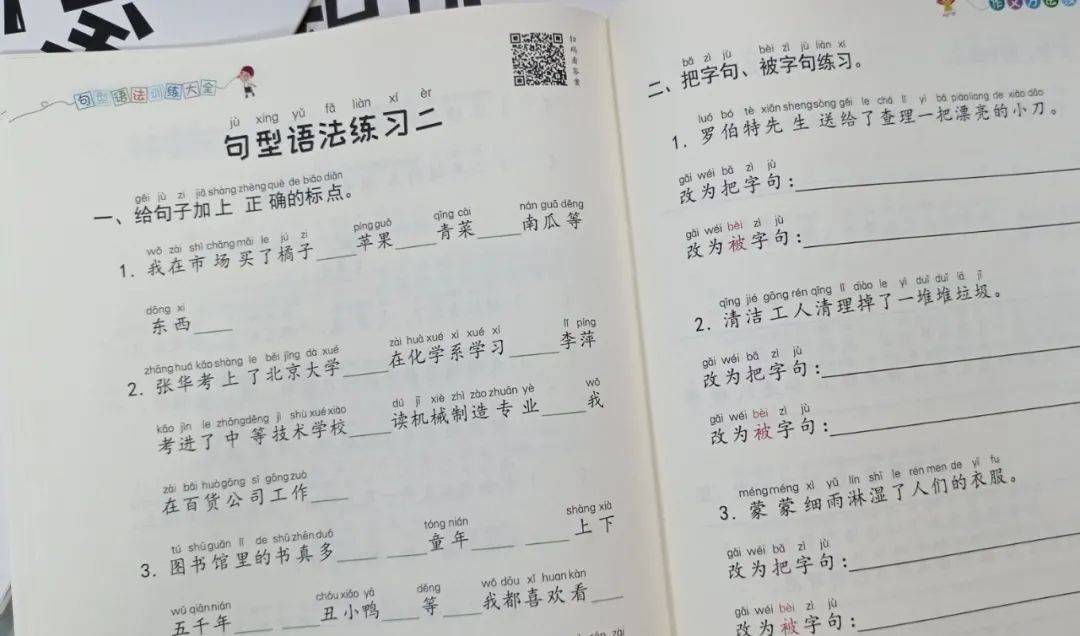 句型语法训练大全
扫码看答案
jù xíng yǔ fǎ liàn xí èr
句型语法练习二
gěi jù zi jiā shàng zhèng què de biāo diǎn
一、给句子加上正确的标点。
wǒ zài shì chǎng mǎi le jú zi píng guǒ qīng cài nán guā děng
1. 我在市场买了橘子____苹果____青菜____南瓜等
dōng xi
东西____
zhāng huá kǎo shàng le běi jīng dà xué zài huà xué xì xué xí lǐ píng
2. 张华考上了北京大学____在化学系学习____李萍
kǎo jìn le zhōng děng jì shù xué xiào dú jī xiè zhì zào zhuān yè wǒ
考进了中等技术学校____读机械制造专业____我
zài bǎi huò gōng sī gōng zuò
在百货公司工作____
tú shū guǎn lǐ de shū zhēn duō tóng nián shàng xià
3. 图书馆里的书真多____ ____童年____ ____上下
wǔ qiān nián chǒu xiǎo yā děng wǒ dōu xǐ huan kàn
五千年____ ____丑小鸭____等____我都喜欢看____
作文方法
bǎ zì jù bèi zì jù liàn xí
二、把字句、被字句练习。
luó bó tè xiān sheng sòng gěi le chá lǐ yì bǎ piào liang de xiǎo dāo
1. 罗伯特先生送给了查理一把漂亮的小刀。
gǎi wéi bǎ zì jù
改为把字句：
gǎi wéi bèi zì jù
改为被字句：
qīng jié gōng rén qīng lǐ diào le yì duī duī lā jī
2. 清洁工人清理掉了一堆堆垃圾。
gǎi wéi bǎ zì jù
改为把字句：
gǎi wéi bèi zì jù
改为被字句：
méng méng xì yǔ lín shī le rén men de yī fu
3. 蒙蒙细雨淋湿了人们的衣服。
gǎi wéi bǎ zì jù
改为把字句：
gǎi wéi bèi zì jù
改为被字句：